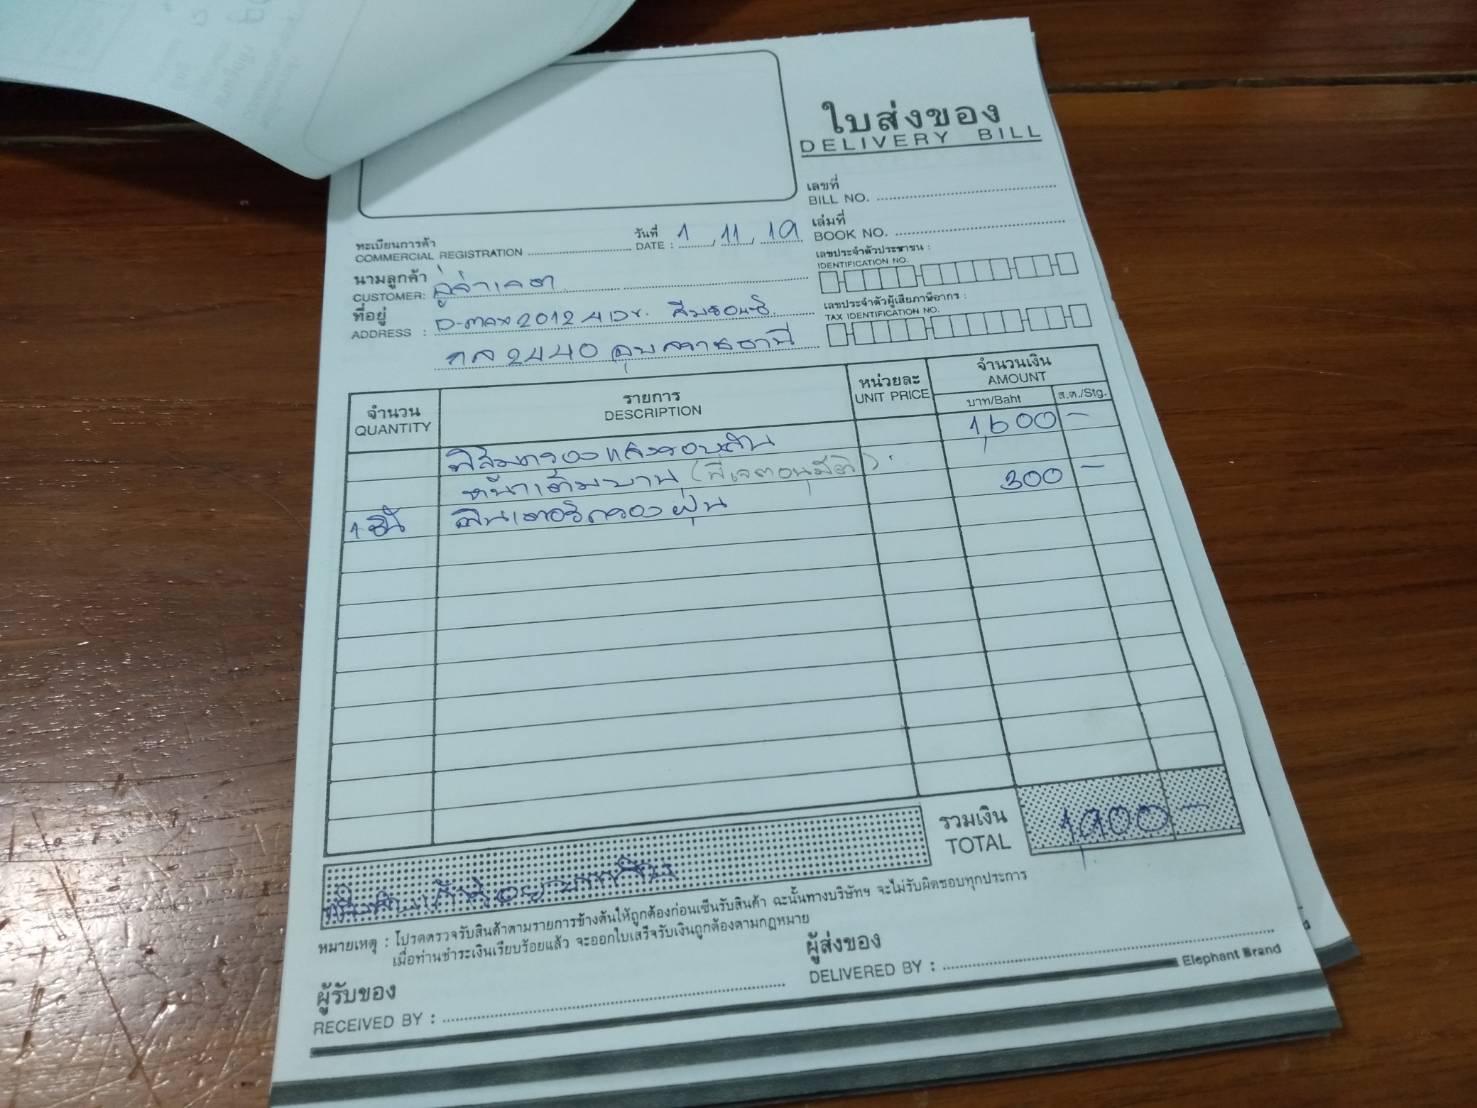 ใบส่งของ
DELIVERY BILL
เลขที่
BILL NO.
เล่มที่
BOOK NO.
ทะเบียนการค้า
COMMERCIAL REGISTRATION
วันที่
DATE : 1, 11, 19
เลขประจำตัวประชาชน :
IDENTIFICATION NO.
นามลูกค้า
CUSTOMER:
เลขประจำตัวผู้เสียภาษีอากร :
TAX IDENTIFICATION NO.
ที่อยู่
ADDRESS : D-max 2012 4 ปร. สีบรอนซ์
กล 2440 อุบลราชธานี
จำนวน
QUANTITY
รายการ
DESCRIPTION
หน่วยละ
UNIT PRICE
จำนวนเงิน
AMOUNT
บาท/Baht
ส.ต./Stg.
ฟิล์มกรองแสงรอบคัน 1,600 -
หน้าเต็มบาน (พี่เจตอนุมัติ)
1 ชิ้น ฟิลเตอร์กรองฝุ่น 300 -
รวมเงิน
TOTAL
1,900 -
หมายเหตุ : โปรดตรวจรับสินค้าตามรายการข้างต้นให้ถูกต้องก่อนเซ็นรับสินค้า ฉะนั้นทางบริษัทฯ จะไม่รับผิดชอบทุกประการ
เมื่อท่านชำระเงินเรียบร้อยแล้ว จะออกใบเสร็จรับเงินถูกต้องตามกฎหมาย
ผู้รับของ
RECEIVED BY :
ผู้ส่งของ
DELIVERED BY :
Elephant Brand